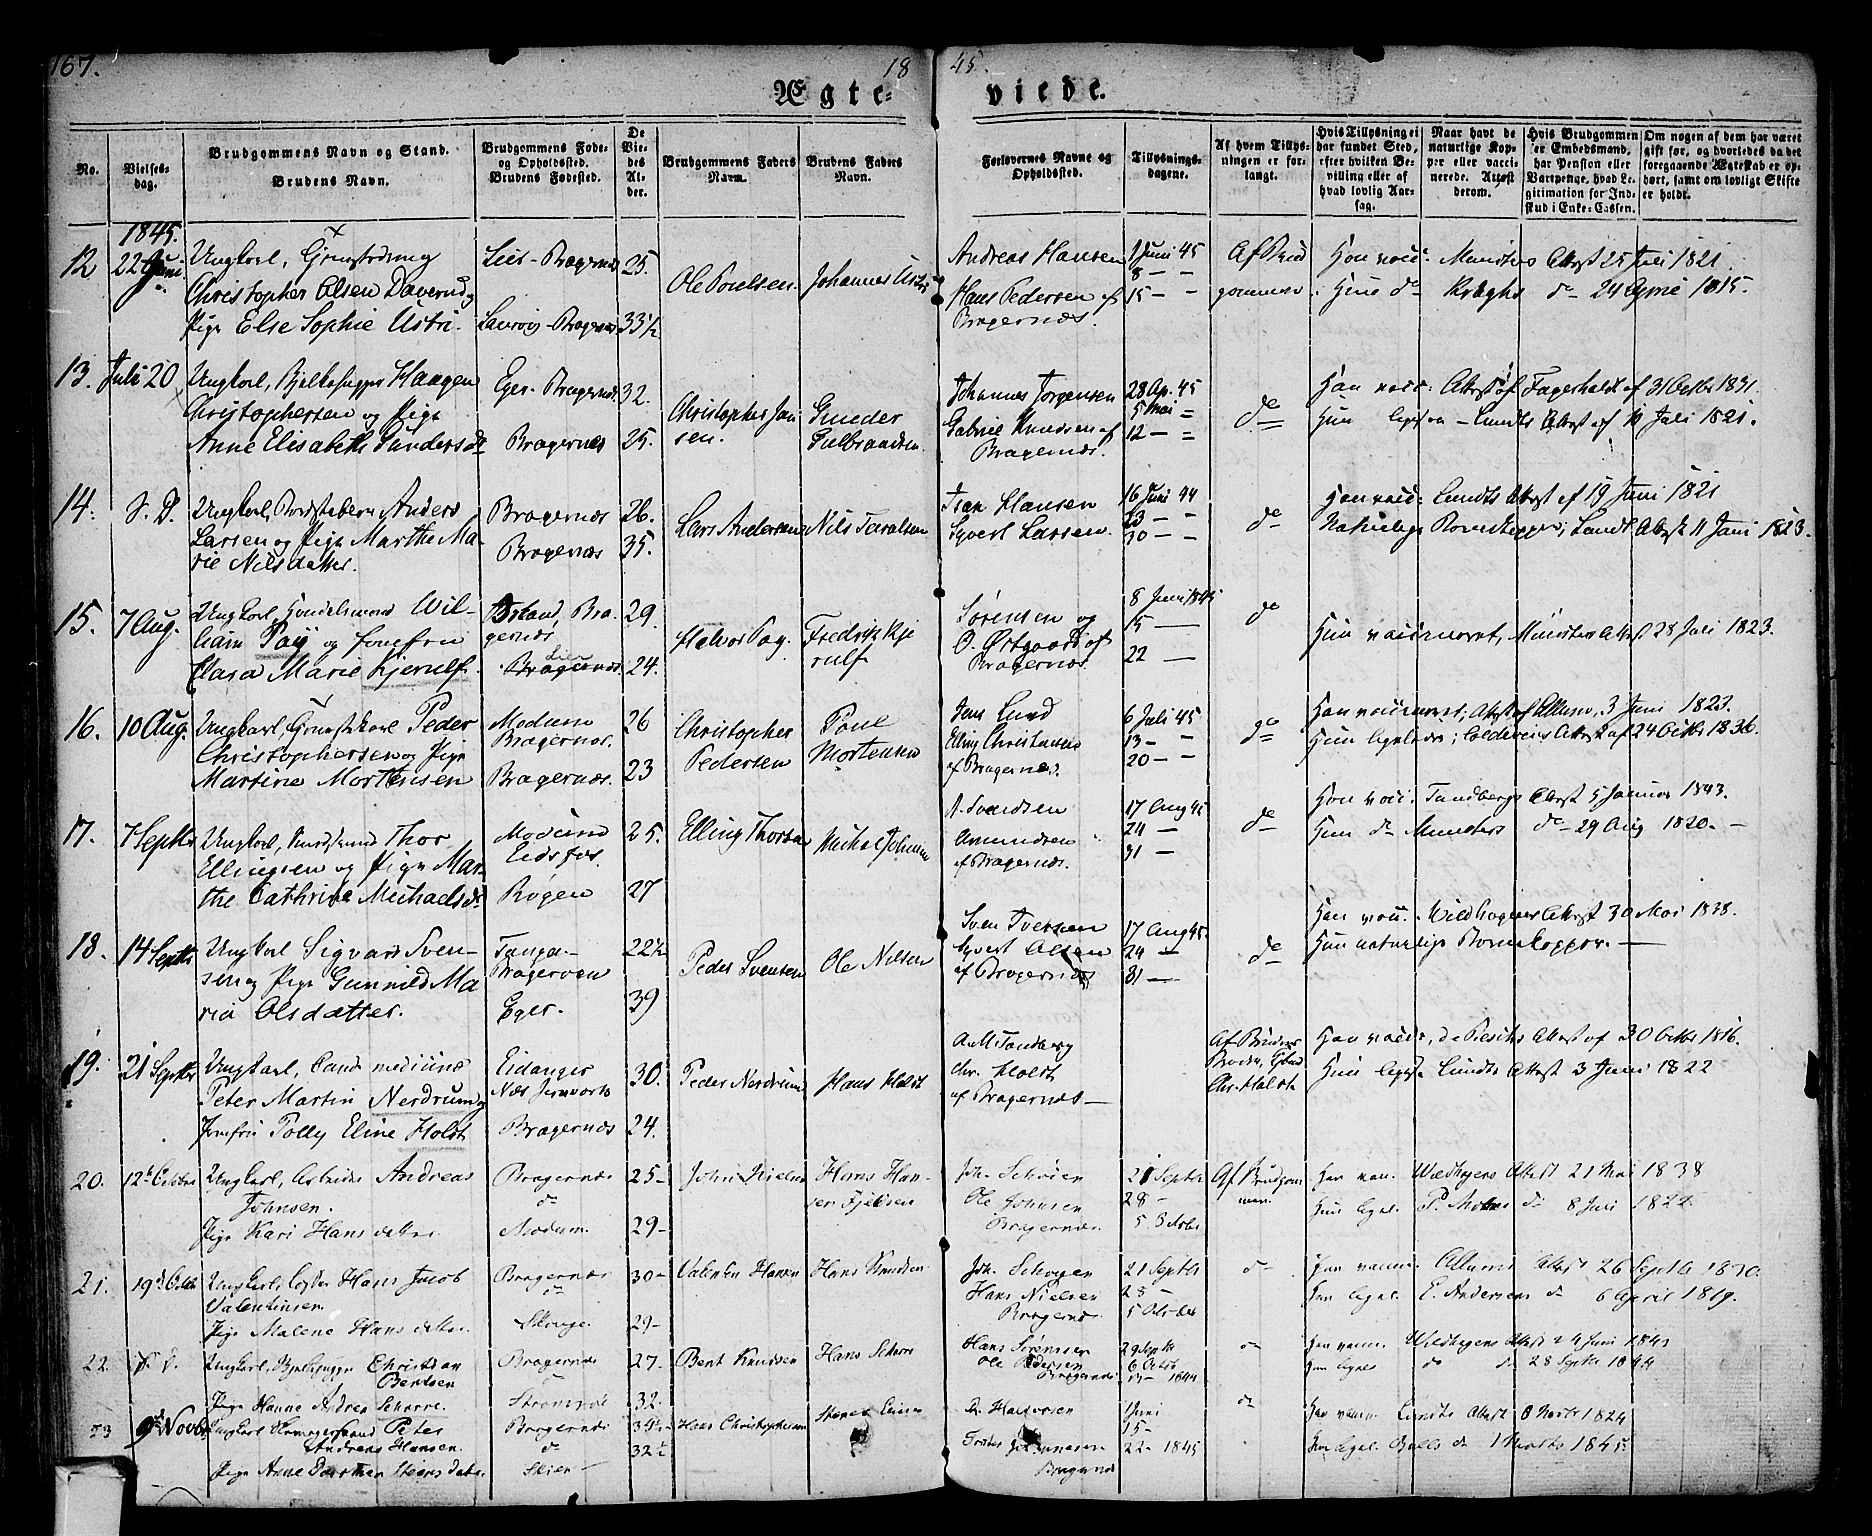 167.
18
45.
Ægte=
viede.
No.
Vielses-
dag.
Brudgommens Navn og Stand.
Brudens Navn.
Brudgommens Føde-
og Opholdssted.
Brudens Fødested.
De
Vie-
des
Al-
der.
Brudgommens Faders
Navn.
Brudens Faders
Navn.
Forlovernes Navne og
Opholdssted.
Tillysnings-
dagene.
Af hvem Tillys-
ningen er for-
langt.
Hvis Tillysning ei
har fundet Sted,
efter hvilken Be-
villing eller af
hvad lovlig Aar-
sag.
Naar havt de
naturlige Kop-
per eller vacci-
nerede. Attest
derom.
Hvis Brudgommen
er Embedsmand,
har Pension eller
Vartpenge, hvad Le-
gitimation for Ind-
skud i Enke-Cassen.
Om nogen af dem har været
gift før, og hvorledes da det
foregaaende Ægteskab er op-
hørt, samt om lovligt Skifte
er holdt.
1845.
12
22 Juni
Ungkarl,
Christopher Olsen Daverud og
Pige Else Sophie Ustri.
Lier - Bragernæs
Laurvig - Bragernæs
25.
33½
Ole Poulsen.
Johannes Ustri
Andreas Hansen
Hans Pedersen af
Bragernæs.
1 Juni 45
8 — —
15 — —
Af Brud
gommen
Han vacc: Münsters Attest 25 Juli 1821
Hun do Kraghs do 24 1815.
13.
Juli 20
Ungkarl, Haagen
Christophersen og Pige
Anne Elisabeth Gundersdr
Eger - Bragernæs
Bragernæs
32.
25.
Christopher Jan
sen.
Gunder
Gulbrandsen.
Johannes Jørgensen
Gabriel Knudsen af
Bragernæs.
28 Ap. 45
5 Mai =
12 — =
do
Han vacc: Attest af Fagerholdt af 31 Octbr 1831.
Hun ligesaa - Lundts Attest af 11 Juli 1821.
14.
S. D.
Ungkarl, Anders
Larsen og Pige Marthe Ma-
rie Nilsdatter.
Bragernæs
Bragenæs
26.
35.
Lars Andersen
Nils Taralsen
Isak Hansen
Syvert Larsen.
16 Juni 44
23 — —
30 — —
do
Han vacc: Lundts Attest af 19 Juni 1821
Naturlige Børnekopper; Lundts Attest 11 Juni 1823.
15.
7 Aug.
Ungkarl, Handelsmand Wil-
liam Pay og Jomfru
Clara Marie Kjerulf.
Bra-
gernæs
Lier
Bragernæs
29.
24.
Halvor Pay.
Fredrik Kje
rulf
Sørensen og
O. Østgaard af
Bragernæs.
8 Juni 1845
15 —
22 —
do
Hun vaccineret, Münsters Attest 28 Juli 1823.
16.
10 Aug.
Ungkarl, Peder
Christophersen og Pige
Martine Mortensen
Modum
Bragernæs.
Bragernæs.
26
23
Christopher
Pedersen
Poul
Mortensen
Jens Lund
Elling Christensen
af Bragernæs.
6 Juli 45
13 — "
20 — —
do
Han vaccineret; Attest af Ellum, 3 Juni 1823.
Hun ligeledes; Attest af 24 Octbr 1836.
17.
7 Septbr
Ungkarl, Thor
Ellingsen og Pige Mar-
the Cathrine Michaelsdr
Modum
Eidsfos.
Røgen
25.
27
Elling Thorsen
Michel Johnsen
A. Svendsen
Amundsen
af Bragernæs.
17 Aug 45
24 —
31 —
do
Han vacc: Tandbergs Attest 5 Januar 1843.
Hun do Münsters do 29 Aug 1820. —
18.
14 Septbr
Ungkarl Sigvard Sven-
sen og Pige Gunnild Ma-
ria Olsdatter.
Tanga -
Bragernæs
Eger.
22½
39
Peder Svensen
Ole Nilsen
Sven Iversen
Syvert Olsen
af Bragernæs
17 Aug 45.
24 —
31 —
do
Han vacc. Wildhagens Attest 30 Mai 1838.
Hun naturlige Børnekopper. —
19.
21 Septbr
Ungkarl, Cand medicinæ
Peter Martin Nerdrum og
Jomfru Polly Eline Holst
Eidanger
Næs Jernværk
Bragernæs
30.
24.
Peder Nerdrum
Hans Holst
A. M Tandberg
Chr. Holst
af Bragernæs —
Af Brudens
Chr. Holst
Han vaccr, Attest af 30 Octbr 1816.
Hun ligesaa Lundts Attest 3 Juni 1822
20.
12te Octobr
Ungkarl, Arbeider Andreas
Johnsen.
Pige Kari Hansdatter
Bragernæs
do
Modum.
25 -
29 -
John Nielsen
Hans Han-
sen Fjeldsen
Joh. Schøien
Ole Johnsen
Bragernæs.
21 Septbr
28 -
5 Octobr
Af Brudgom
men.
Han vacc. Wildhagens Attest 21 Mai 1838
Hun ligel. P. Møllers do 8 Juni 1822.
21.
19de Octb
Ungkarl, Hans Jacob
Valentinsen
Pige Malene Hansdatter
Bragernæs
do
Skouge.
30 -
29 -
Valentin Hansen
Hans Knudsen
Joh. Schøyen
Hans Nielsen
Bragernæs
21 Septbr
28 -
5 October
do
Han vaccin. Ellums Attest 26 Septbr 1830.
Hun ligel. E. Andersens do 6 April 1819.
22.
S. D.
Ungkarl, Christian
Bentsen
Pige Hanne Andrea Schorre
Bragernæs
do
Strømsøe
27 -
32.
Bent Knudsen
Hans Schorre
Hans Sørensen
Ole Pedersen
Bragernæs
29 Septbr
6 Octbr
13 - 1844
do
Han vaccin. Wildhagens Attest 24 Juni 1841
Hun ligel. do do 28 Septbr 1844
23
9de Novbr
Ungkarl Peter
Andreas Hansen.
Pige Anne Dorthea Steensdatter
Bragernæs
do
Skien -
32½
Hans Christophersen
1 Juni
15 -
22 - 1845
Bragernæs
do
Han vaccin. Lundts Attest 8 Marts 1824
Hun ligel. Balls do 1 Marts 1845.